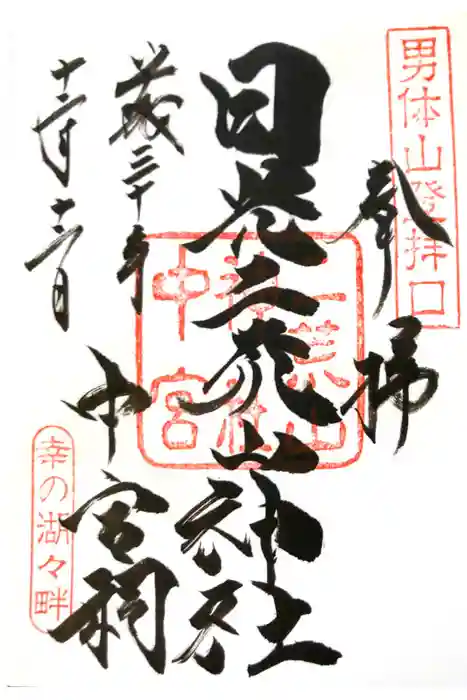 男体山登拝口
奉拝
日光二荒山神社
中宮祠
二荒山
神社
中宮
平成三十年
幸の湖々畔